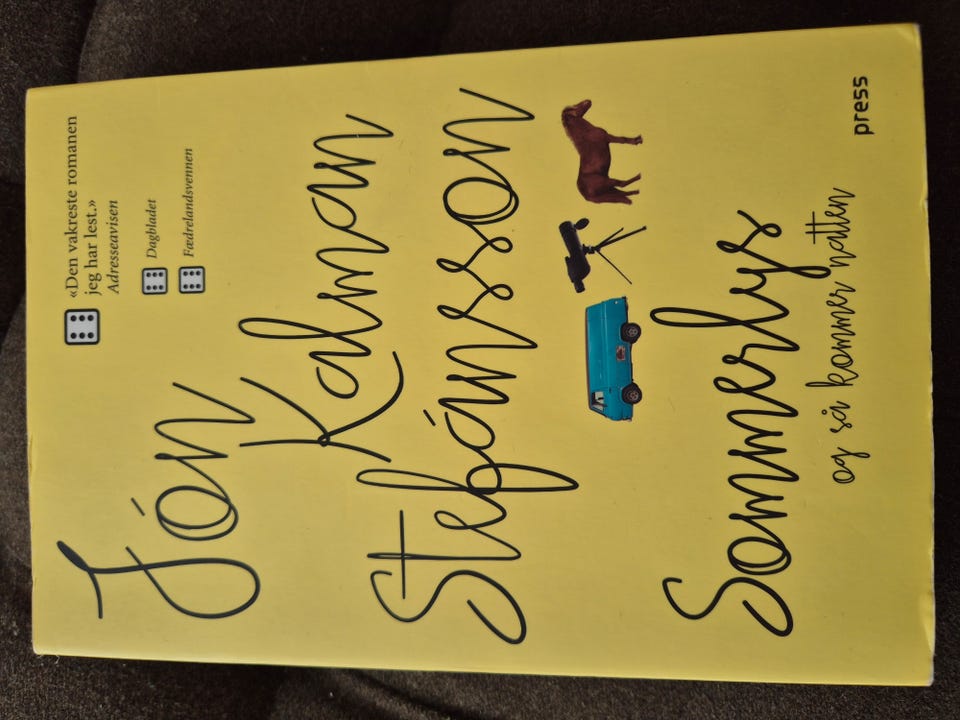 «Den vakreste romanen
jeg har lest.»
Adresseavisen
Dagbladet
Fædrelandsvennen
Jón
Kalman
Stefánsson
Sommerlys
og så kommer natten
press